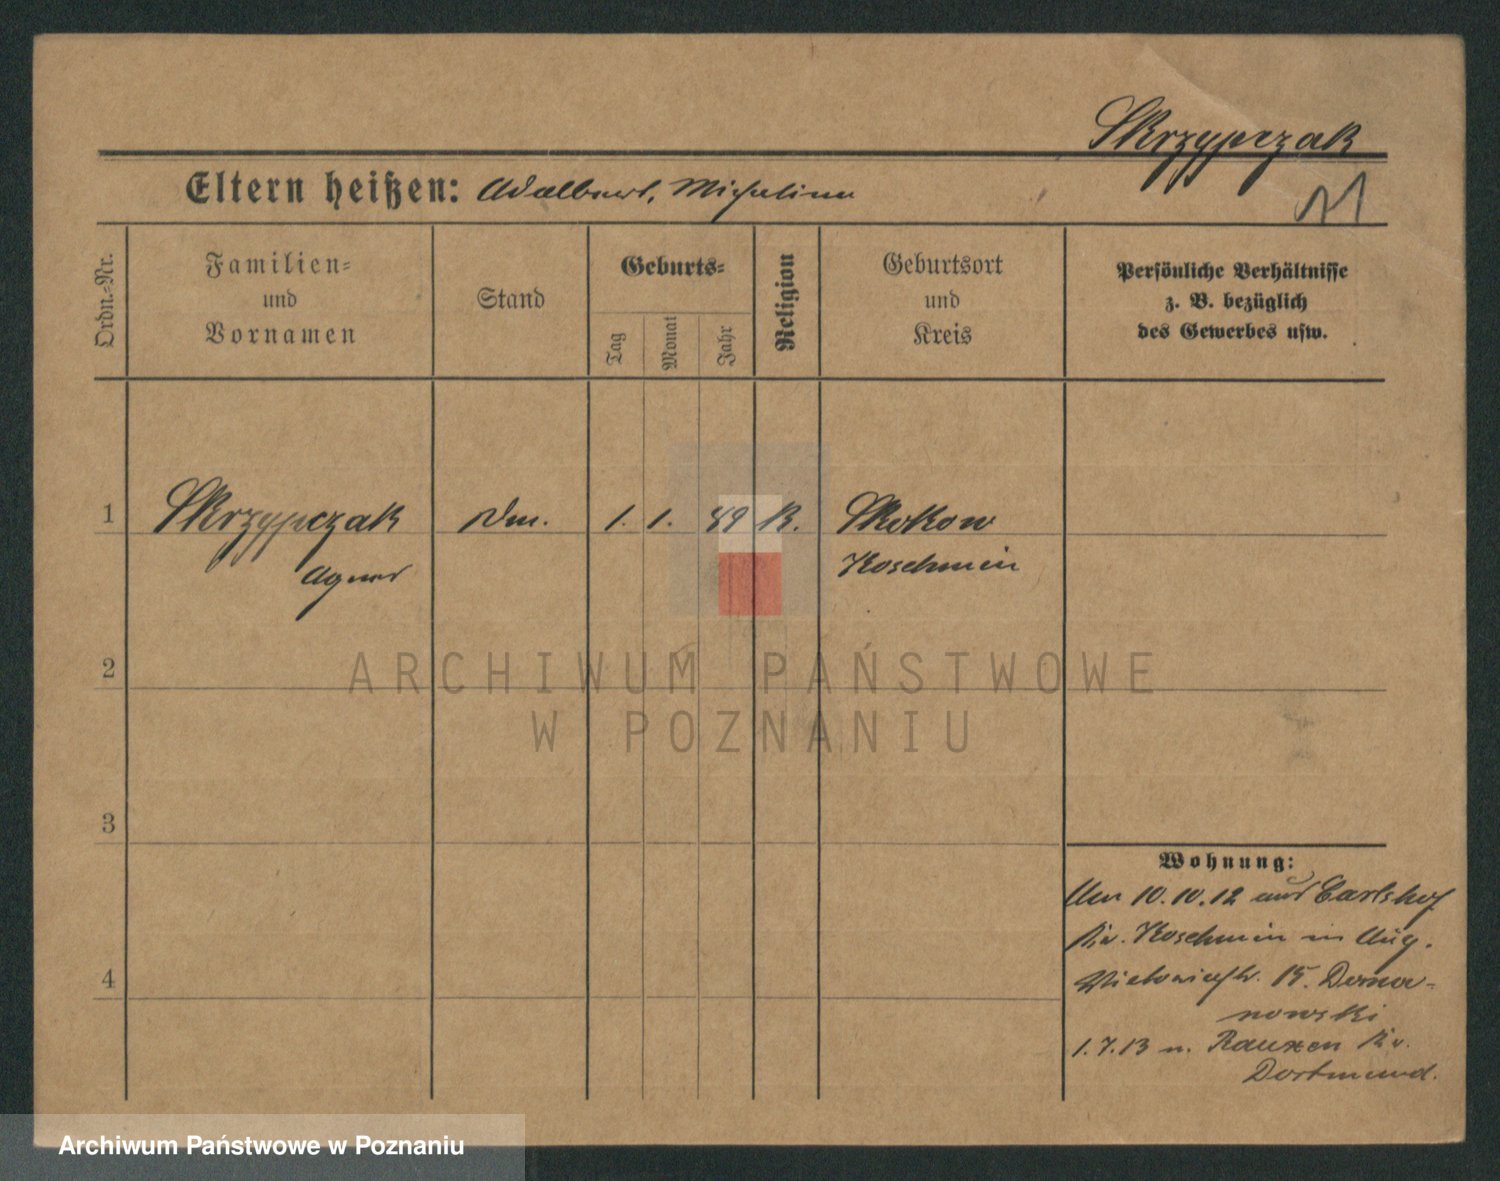 Skrzypczak
Eltern heißen: Adalbert, Michalina
Ordn.-Nr.
Familien-
und
Vornamen
Stand
Geburts-
Tag
Monat
Jahr
Religion
Geburtsort
und
Kreis
Persönliche Verhältnisse
z. B. bezüglich
des Gewerbes usw.
1 Skrzypczak 1. 1. 89 K. Skokow
Agnes Koschmin
2
ARCHIWUM PAŃSTWOWE
W POZNANIU
3
Wohnung:
10.10.12 aus Carlshof
Kr. Koschmin in
4
Victoriastr. 15. Doma-
nowski
1.7.13 n. Rauxen Kr.
Dortmund.
Archiwum Państwowe w Poznaniu